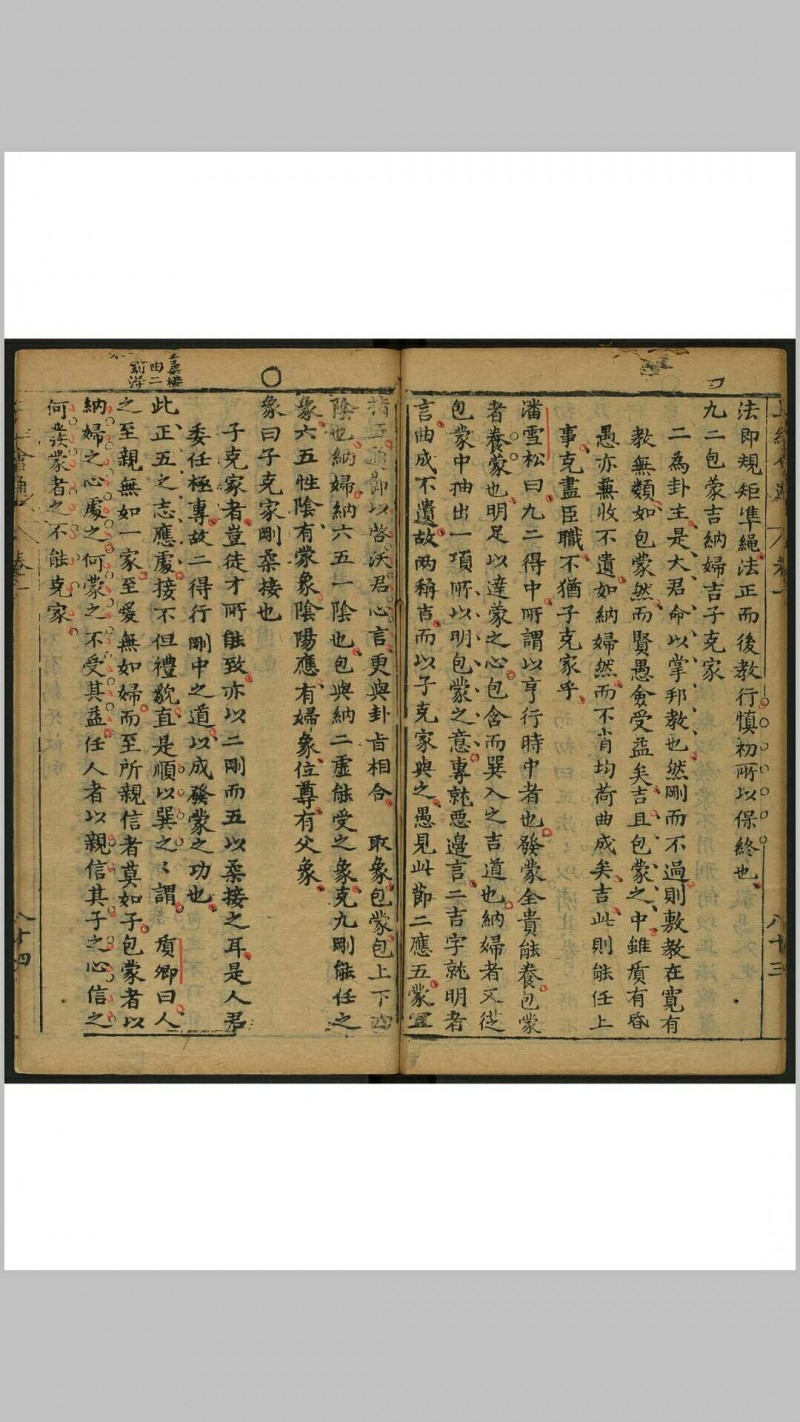 法即規矩準繩法正而後教行慎初所以保終也
九二包蒙吉納婦吉子克家
二為卦主是大君命以掌邦教也然剛而不過則敷教在寬有
教無類如包蒙然而賢愚僉受益矣吉且包蒙之中雖質有昏
愚亦兼收不遺如納婦然而不肖均荷曲成矣吉此則能任上
事克盡臣職不猶子克家乎
潘雪松曰九二得中所謂以亨行時中者也發蒙全貴能養包蒙
者養蒙也明足以達蒙之心包含而巽入之吉道也納婦者又從
包蒙中抽出一項所以明包蒙之意專就悪邊言二吉字就明者
言曲成不遺故两稱吉而以子克家與之愚見此節二應五蒙宜
以啓沃君心言更與卦旨相合 取象包蒙包上下四
陰也納婦納六五一陰也包與納二虛能受之象克九剛能任之
象六五性陰有蒙象陰陽應有婦象位尊有父象
象曰子克家剛柔接也
子克家者豈徒才所能致亦以二剛而五以柔接之耳是人君
委任極專故二得行剛中之道以成發蒙之功也
此正五之志應處接不但禮貌直是順以巽之〻謂 質卿曰人
之至親無如一家至愛無如婦而至所親信者莫如子包蒙者以
納婦之心處之何蒙之不受其益任人者以親信其子之心信之
何發蒙者之不能克家
八十三
八十四